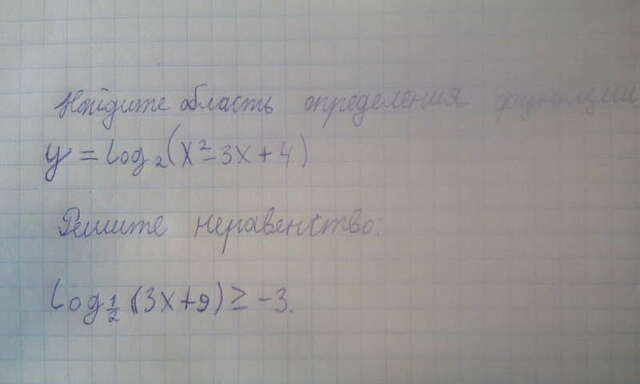 Найдите область определения функции
y = log₂(x² - 3x + 4)
Решите неравенство:
log½(3x + 9) ≥ -3.